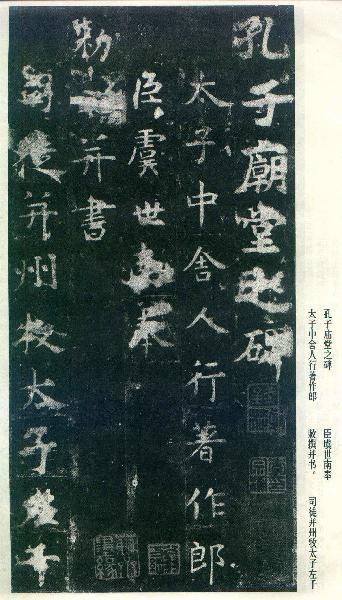 孔子廟堂之碑
太子中舍人行著作郎
臣虞世南奉
勅撰并書
司徒并州牧太子左千
孔子庙堂之碑　臣虞世南奉
太子中舍人行著作郎　敕撰并书。　司徒并州牧太子左千